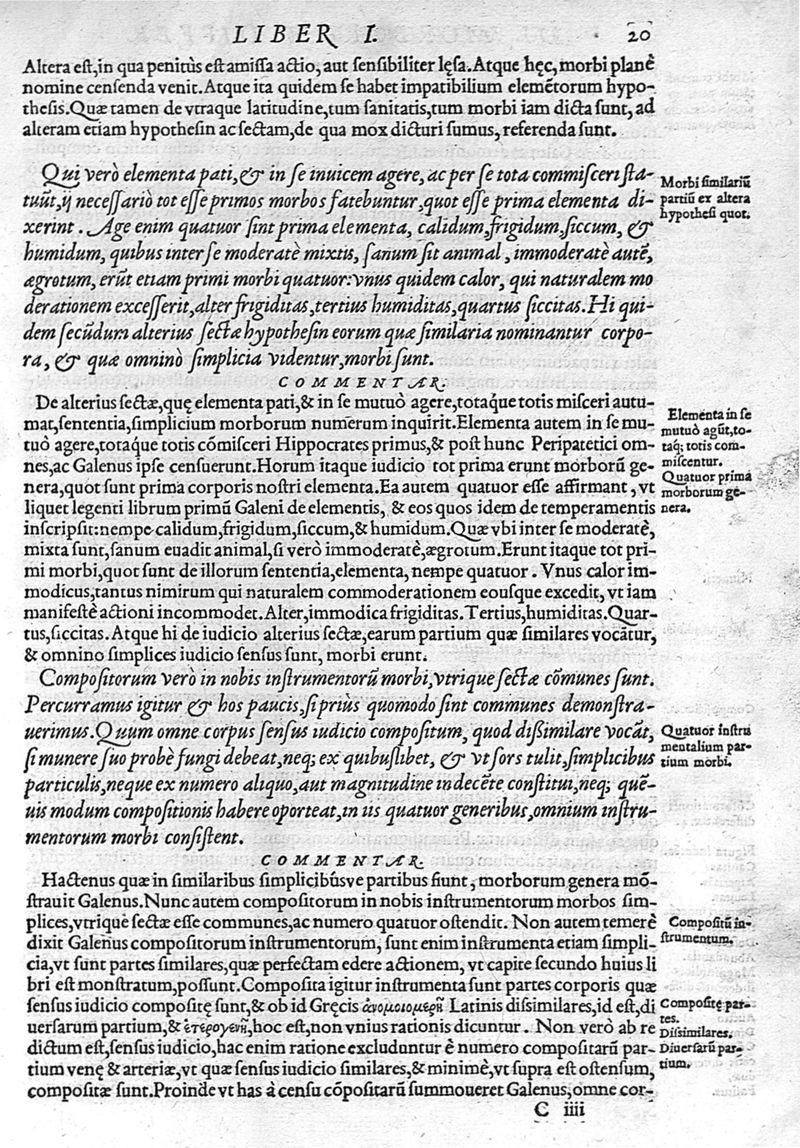 LIBER I.
20
Altera est, in qua penitùs est amissa actio, aut sensibiliter lęsa. Atque hęc, morbi planè
nomine censenda venit. Atque ita quidem se habet impatibilium elemẽtorum hypo-
thesis. Quæ tamen de vtraque latitudine, tum sanitatis, tum morbi iam dicta sunt, ad
alteram etiam hypothesin ac sectam, de qua mox dicturi sumus, referenda sunt.
Qui verò elementa pati, & in se inuicem agere, ac per se tota commisceri sta-
tuũt, ij necessariò tot esse primos morbos fatebuntur, quot esse prima elementa di-
xerint. Age enim quatuor sint prima elementa, calidum, frigidum, siccum, &
humidum, quibus inter se moderatè mixtis, sanum sit animal, immoderatè autẽ,
ægrotum, erũt etiam primi morbi quatuor: vnus quidem calor, qui naturalem mo
derationem excesserit, alter frigiditas, tertius humiditas, quartus siccitas. Hi qui-
dem secũdum alterius sectæ hypothesin eorum quæ similaria nominantur corpo-
ra, & quæ omninò simplicia videntur, morbi sunt.
Morbi similariũ
partiũ ex altera
hypothesi quot.
COMMENTAR.
De alterius sectæ, quę elementa pati, & in se mutuò agere, totaque totis misceri autu-
mat, sententia, simplicium morborum numerum inquirit. Elementa autem in se mu-
tuò agere, totaque totis cõmisceri Hippocrates primus, & post hunc Peripatetici om-
nes, ac Galenus ipse censuerunt. Horum itaque iudicio tot prima erunt morborũ ge-
nera, quot sunt prima corporis nostri elementa. Ea autem quatuor esse affirmant, vt
liquet legenti librum primũ Galeni de elementis, & eos quos idem de temperamentis
inscripsit: nempe calidum, frigidum, siccum, & humidum. Quæ vbi inter se moderatè,
mixta sunt, sanum euadit animal, si verò immoderatè, ægrotum. Erunt itaque tot pri-
mi morbi, quot sunt de illorum sententia, elementa, nempe quatuor. Vnus calor im-
modicus, tantus nimirum qui naturalem commoderationem eousque excedit, vt iam
manifestè actioni incommodet. Alter, immodica frigiditas. Tertius, humiditas. Quar-
tus, siccitas. Atque hi de iudicio alterius sectæ, earum partium quæ similares vocãtur,
& omnino simplices iudicio sensus sunt, morbi erunt.
Elementa in se
mutuò agũt, to-
taq; totis com-
miscentur.
Quatuor prima
morborum ge-
nera.
Compositorum verò in nobis instrumentorũ morbi, vtrique sectæ cõmunes sunt.
Percurramus igitur & hos paucis, si priùs quomodo sint communes demonstra-
uerimus. Quum omne corpus sensus iudicio compositum, quod dissimilare vocãt,
si munere suo probè fungi debeat, neq; ex quibuslibet, & vt sors tulit, simplicibus
particulis, neque ex numero aliquo, aut magnitudine indecẽte constitui, neq; quẽ-
uis modum compositionis habere oporteat, in iis quatuor generibus, omnium instru-
mentorum morbi consistent.
Quatuor instru
mentalium par-
tium morbi.
COMMENTAR.
Hactenus quæ in similaribus simplicibúsve partibus fiunt, morborum genera mõ-
strauit Galenus. Nunc autem compositorum in nobis instrumentorum morbos sim-
plices, vtrique sectæ esse communes, ac numero quatuor ostendit. Non autem temerè
dixit Galenus compositorum instrumentorum, sunt enim instrumenta etiam simpli-
cia, vt sunt partes similares, quæ perfectam edere actionem, vt capite secundo huius li
bri est monstratum, possunt. Composita igitur instrumenta sunt partes corporis quæ
sensus iudicio compositę sunt, & ob id Gręcis ἀνομοιομερῆ Latinis dissimilares, id est, di
uersarum partium, & ἑτερογενῆ, hoc est, non vnius rationis dicuntur. Non verò ab re
dictum est, sensus iudicio, hac enim ratione excluduntur è numero compositarũ par-
tium venę & arteriæ, vt quæ sensus iudicio similares, & minimè, vt supra est ostensum,
compositæ sunt. Proinde vt has à censu cõpositarũ summoueret Galenus, omne cor-
Compositũ in-
strumentum.
Compositę par-
tes.
Dissimilares.
Diuersarũ par-
tium.
C iiii